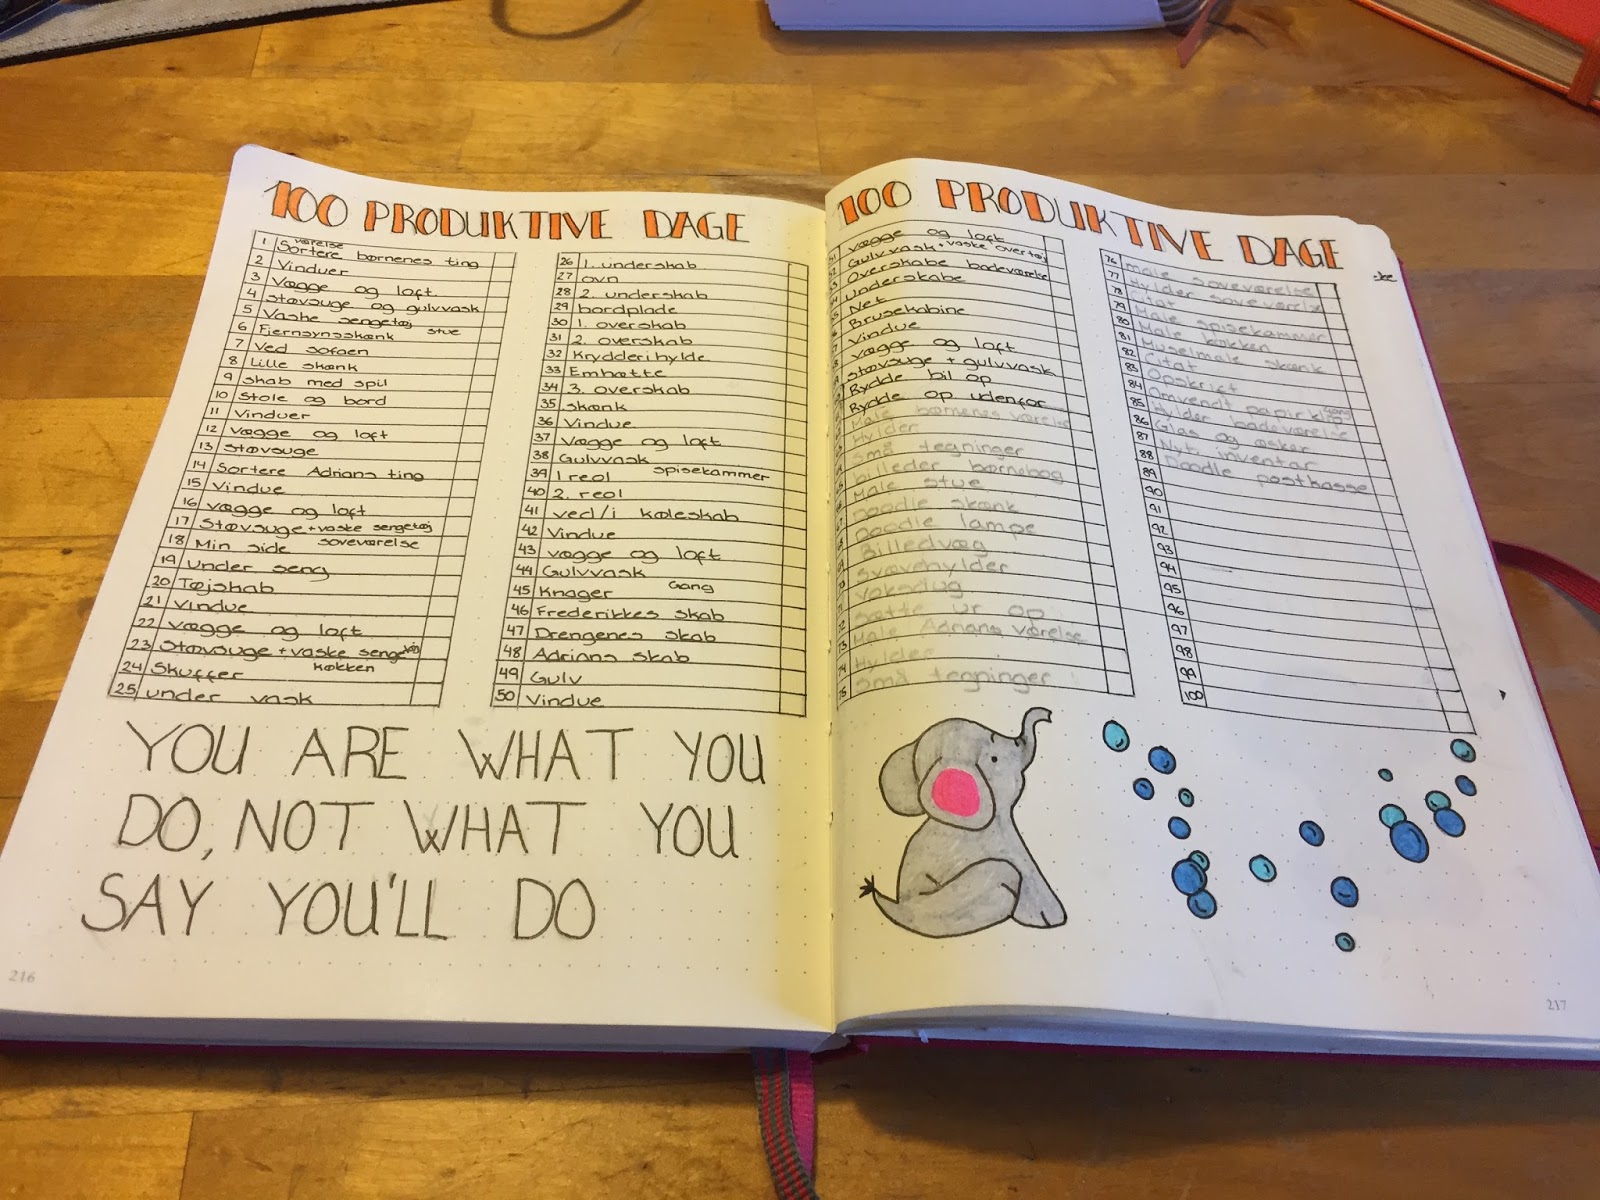 100 PRODUKTIVE DAGE
værelse
1 Sortere børnenes ting
2 Vinduer
3 Vægge og loft
4 Støvsuge og gulvvask
5 Vaske sengetøj
stue
6 Fjernsynsskænk
7 Ved sofaen
8 Lille skænk
9 skab med spil
10 Stole og bord
11 Vinduer
12 Vægge og loft
13 Støvsuge
14 Sortere Adrians ting
15 Vindue
16 vægge og loft
17 Støvsuge + vaske sengetøj
soveværelse
18 Min side
19 under seng
20 Tøjskab
21 Vindue
22 vægge og loft
23 Støvsuge + vaske sengetøj
køkken
24 Skuffer
25 under vask
26 1. underskab
27 ovn
28 2. underskab
29 bordplade
30 1. overskab
31 2. overskab
32 Krydderihylde
33 Emhætte
34 3. overskab
35 skænk
36 Vindue
37 Vægge og loft
38 Gulvvask
spisekammer
39 1 reol
40 2. reol
41 ved/i køleskab
42 Vindue
43 vægge og loft
44 Gulvvask
Gang
45 Knager
46 Frederikkes skab
47 Drengenes skab
48 Adrians skab
49 Gulv
50 Vindue
YOU ARE WHAT YOU
DO, NOT WHAT YOU
SAY YOU'LL DO
216
100 PRODUKTIVE DAGE
vægge og loft
Gulvvask + vaske overtøj
Overskabe badeværelse
Underskabe
Net
Brusekabine
Vindue
Vægge og loft
Støvsuge + gulvvask
Rydde bil op
Rydde op udenfor
Male børnenes værelse
Hylder
Små tegninger
billeder børnebog
Male stue
Doodle skænk
Doodle lampe
Billedvæg
Svævehylder
Voksdug
Sætte ur op
Male Adrians værelse
Hylder
75 Små tegninger
76 male soveværelse
77 Hylder soveværelse
78 Citat
79 Male spisekammer
80 Male køkken
81 Muselmale skænk
82 Citat
83 Opskrift
84 Omvendt papirklip
gang
85 Hylder badeværelse
86 Glas og æsker
87 Nyt inventar
88 Doodle postkasse
89
90
91
92
93
94
95
96
97
98
99
100
217